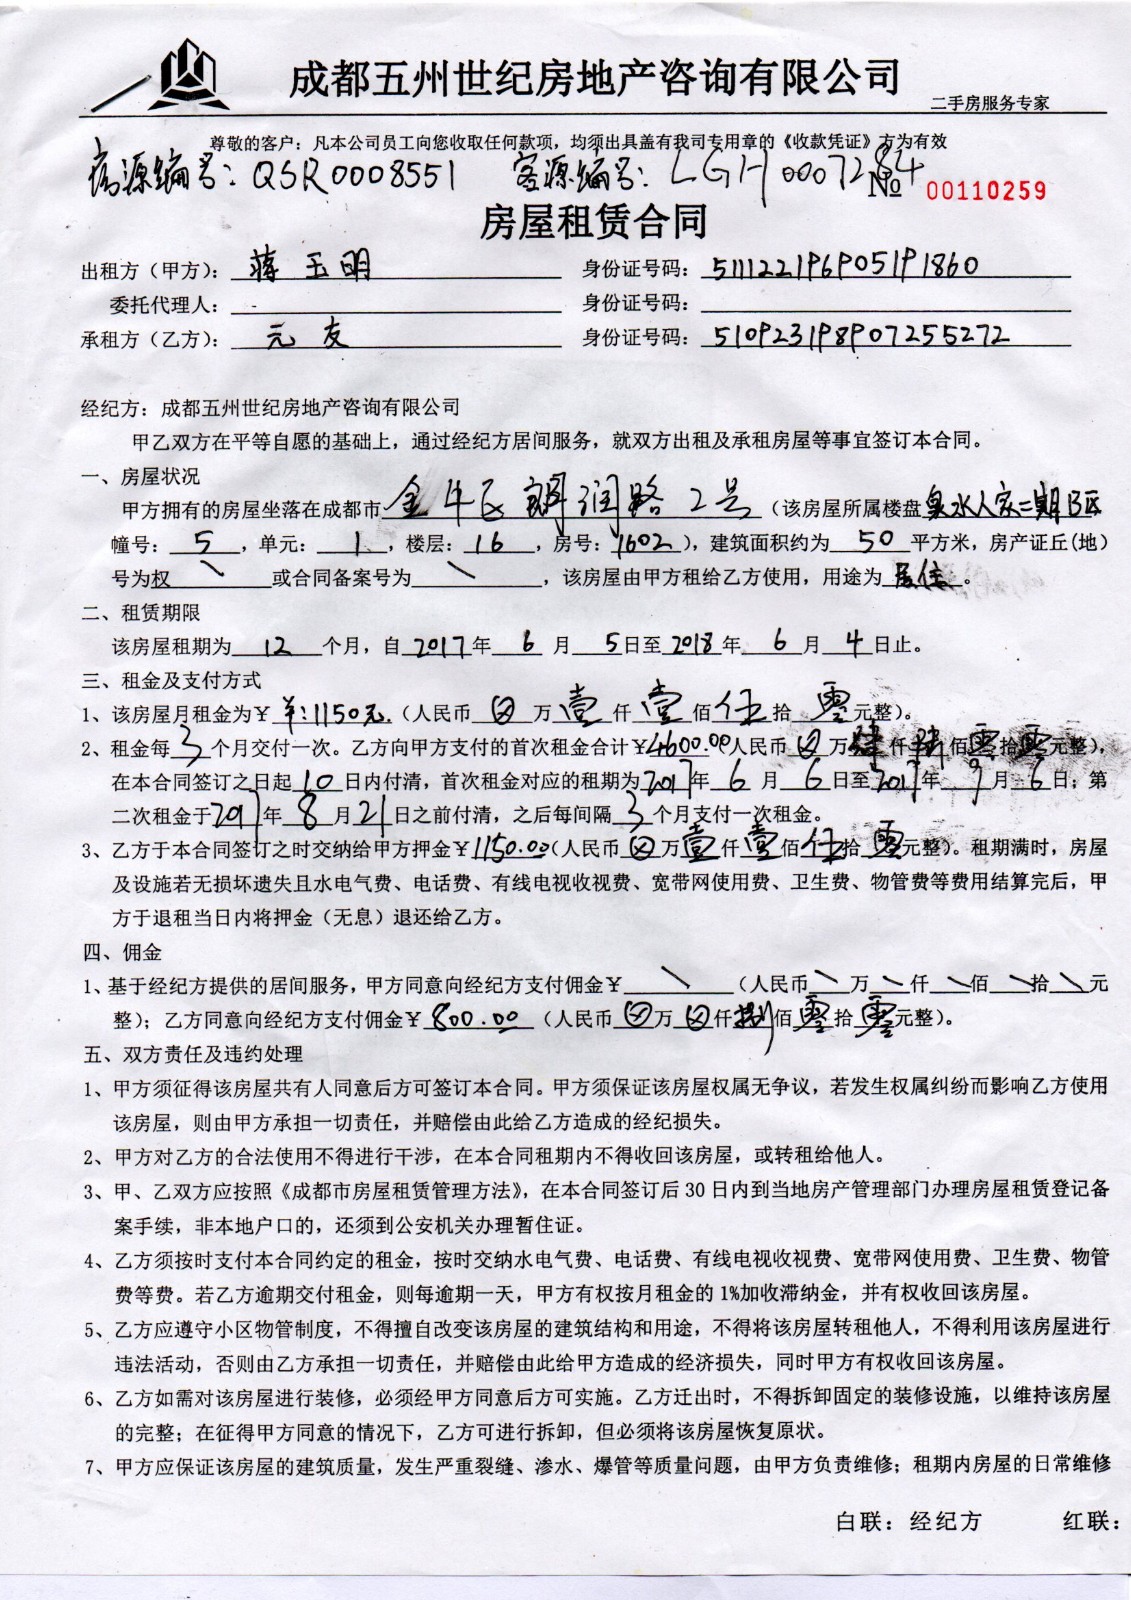 成都五州世纪房地产咨询有限公司
二手房服务专家
尊敬的客户：凡本公司员工向您收取任何款项，均须出具盖有我司专用章的《收款凭证》方为有效
房源编号：QSR0008551 客源编号：LGH0007284 № 00110259
房屋租赁合同
出租方（甲方）：蒋玉明 身份证号码：511122196905191860
委托代理人： 身份证号码：
承租方（乙方）：元友 身份证号码：510923198907255272
经纪方：成都五州世纪房地产咨询有限公司
甲乙双方在平等自愿的基础上，通过经纪方居间服务，就双方出租及承租房屋等事宜签订本合同。
一、房屋状况
甲方拥有的房屋坐落在成都市金牛区 润路2号（该房屋所属楼盘泉水人家二期B区
幢号：5，单元：1，楼层：16，房号：1602），建筑面积约为50平方米，房产证丘(地)
号为权\或合同备案号为\，该房屋由甲方租给乙方使用，用途为居住。
二、租赁期限
该房屋租期为12个月，自2017年6月5日至2018年6月4日止。
三、租金及支付方式
1、该房屋月租金为￥羊:1150元.（人民币⊗万壹仟壹佰伍拾零元整）。
2、租金每3个月交付一次。乙方向甲方支付的首次租金合计￥4600.00人民币⊗万肆仟陆佰零拾零元整)，
在本合同签订之日起10日内付清，首次租金对应的租期为2017年6月6日至2017年9月6日；第
二次租金于2017年8月21日之前付清，之后每间隔3个月支付一次租金。
3、乙方于本合同签订之时交纳给甲方押金￥1150.00（人民币⊗万壹仟壹佰伍拾零元整）。租期满时，房屋
及设施若无损坏遗失且水电气费、电话费、有线电视收视费、宽带网使用费、卫生费、物管费等费用结算完后，甲
方于退租当日内将押金（无息）退还给乙方。
四、佣金
1、基于经纪方提供的居间服务，甲方同意向经纪方支付佣金￥\（人民币\万\仟\佰\拾\元
整）；乙方同意向经纪方支付佣金￥800.00（人民币⊗万⊗仟捌佰零拾零元整）。
五、双方责任及违约处理
1、甲方须征得该房屋共有人同意后方可签订本合同。甲方须保证该房屋权属无争议，若发生权属纠纷而影响乙方使用
该房屋，则由甲方承担一切责任，并赔偿由此给乙方造成的经纪损失。
2、甲方对乙方的合法使用不得进行干涉，在本合同租期内不得收回该房屋，或转租给他人。
3、甲、乙双方应按照《成都市房屋租赁管理方法》，在本合同签订后30日内到当地房产管理部门办理房屋租赁登记备
案手续，非本地户口的，还须到公安机关办理暂住证。
4、乙方须按时支付本合同约定的租金，按时交纳水电气费、电话费、有线电视收视费、宽带网使用费、卫生费、物管
费等费。若乙方逾期交付租金，则每逾期一天，甲方有权按月租金的1%加收滞纳金，并有权收回该房屋。
5、乙方应遵守小区物管制度，不得擅自改变该房屋的建筑结构和用途，不得将该房屋转租他人，不得利用该房屋进行
违法活动，否则由乙方承担一切责任，并赔偿由此给甲方造成的经济损失，同时甲方有权收回该房屋。
6、乙方如需对该房屋进行装修，必须经甲方同意后方可实施。乙方迁出时，不得拆卸固定的装修设施，以维持该房屋
的完整；在征得甲方同意的情况下，乙方可进行拆卸，但必须将该房屋恢复原状。
7、甲方应保证该房屋的建筑质量，发生严重裂缝、渗水、爆管等质量问题，由甲方负责维修；租期内房屋的日常维修
白联：经纪方 红联：